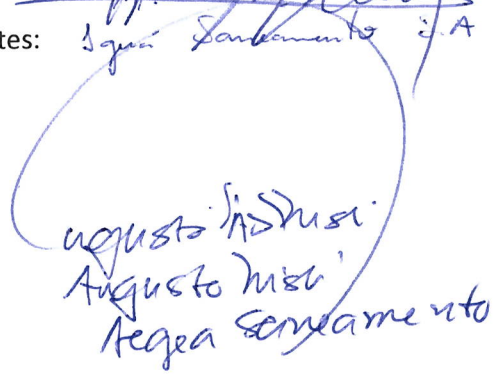 tes: Iguá Saneamento S.A
Augusto Nishi
Aegea Saneamento